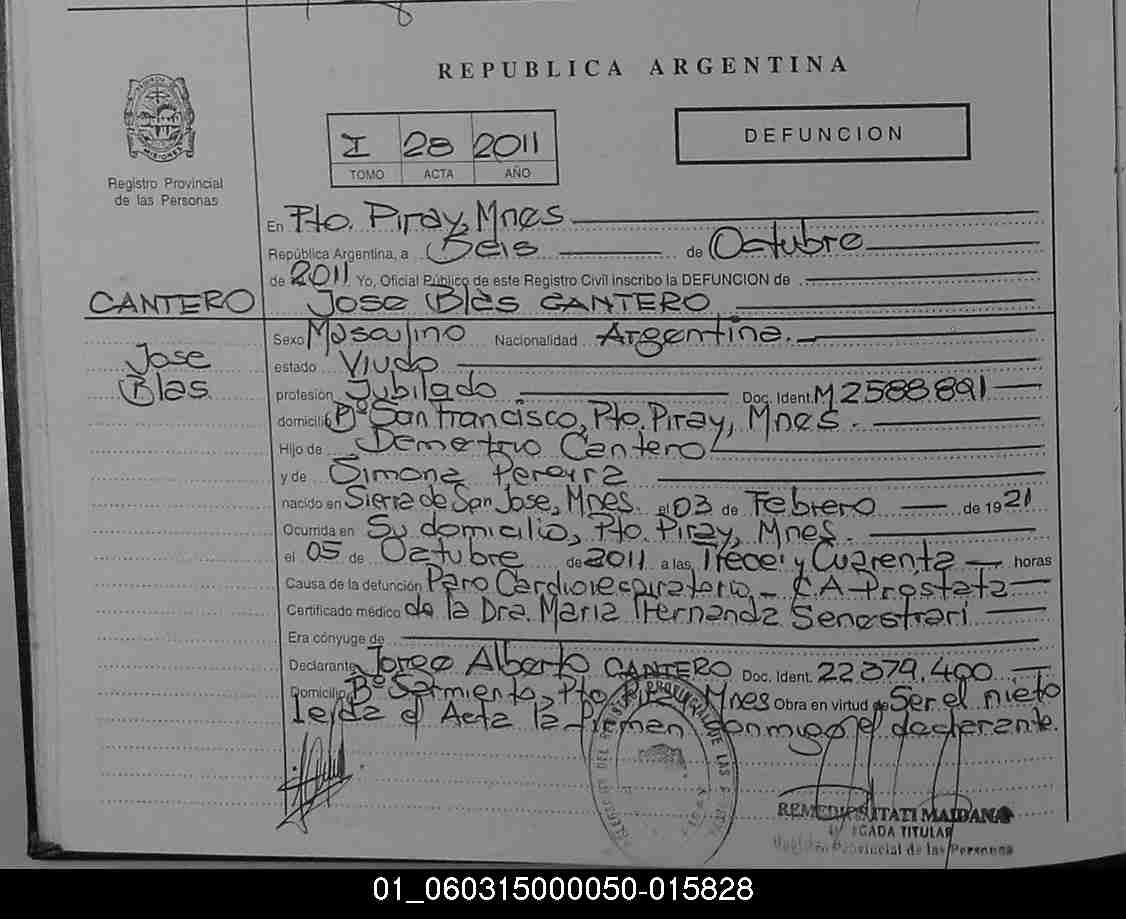 REPUBLICA ARGENTINA
I 28 2011
TOMO ACTA AÑO
DEFUNCION
MISIONES
Registro Provincial
de las Personas
En Pto. Piray, Mnes
República Argentina, a Seis de Octubre
de 2011 Yo, Oficial Público de este Registro Civil inscribo la DEFUNCION de
CANTERO Jose Blas CANTERO
Sexo Masculino Nacionalidad Argentina.
Jose
Blas
estado Viudo
profesión Jubilado Doc. Ident. M 2588.891
domicilio Bº San Francisco, Pto. Piray, Mnes.
Hijo de Demetrio Cantero
y de Simona Pereyra
nacido en Sierra de San Jose, Mnes. el 03 de Febrero de 1921
Ocurrida en Su domicilio, Pto. Piray, Mnes.
el 05 de Octubre de 2011 a las Trece y Cuarenta horas
Causa de la defunción Paro Cardiorespiratorio - C.A Próstata
Certificado médico de la Dra. Maria Fernanda Senestrari
Era cónyuge de
Declarante Jorge Alberto CANTERO Doc. Ident. 22.379.400
Domicilio Bº Sarmiento, Pto. Piray Mnes Obra en virtud de Ser el nieto
leida el Acta la firman conmigo el declarante.
REMEDIOS ITATI MAIDANA
TITULAR
Provincial de las Personas
01_060315000050-015828